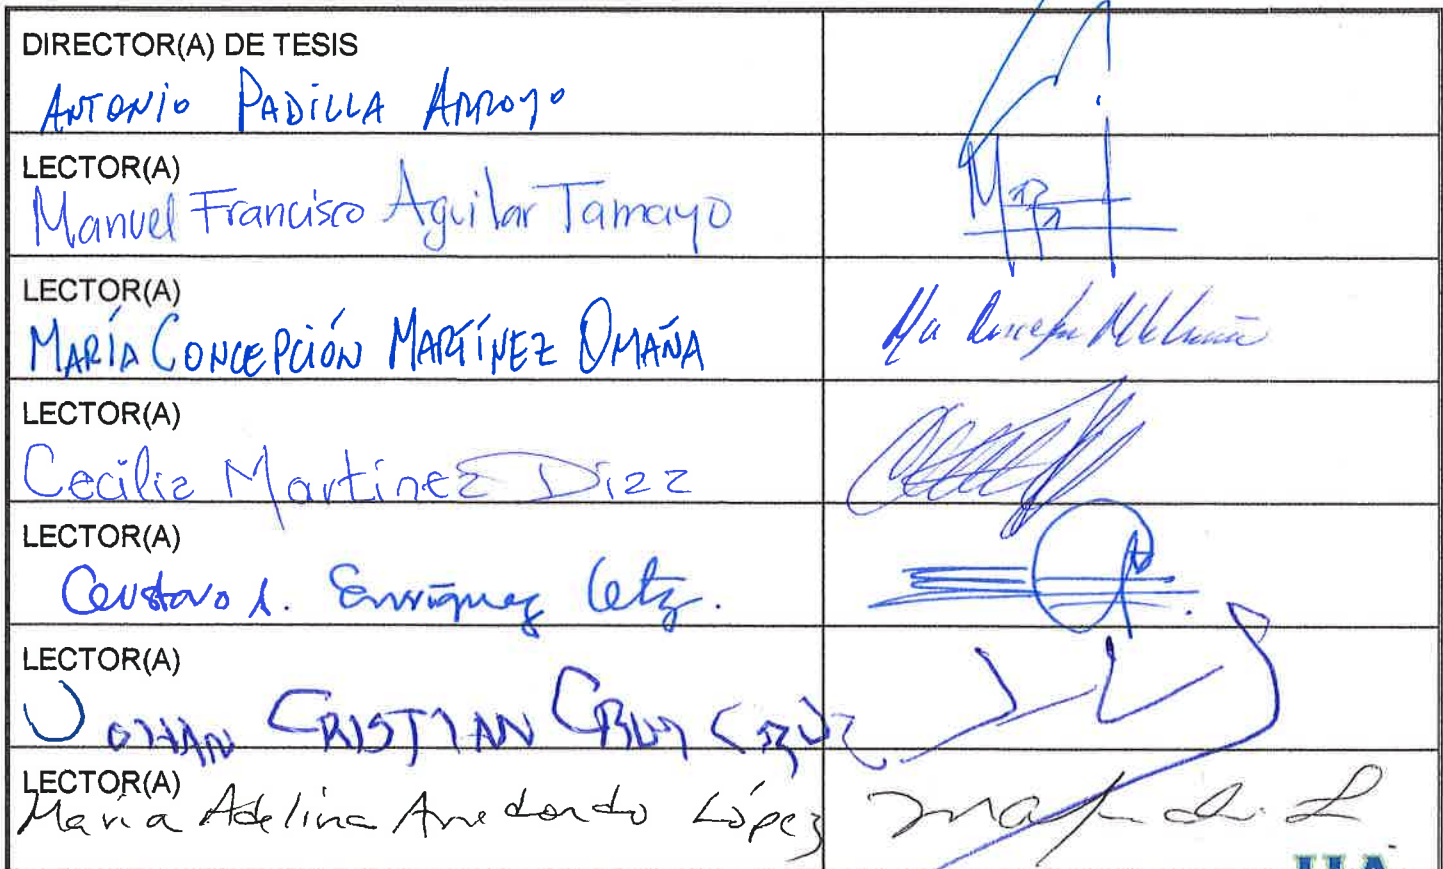 DIRECTOR(A) DE TESIS
ANTONIO PADILLA ARROYO
LECTOR(A)
Manuel Francisco Aguilar Tamayo
LECTOR(A)
MARÍA CONCEPCIÓN MARTÍNEZ OMAÑA
LECTOR(A)
Cecilia Martinez Diaz
LECTOR(A)
Gustavo A. Enríquez
LECTOR(A)
JOHAN CRISTIAN CRUZ CRUZ
LECTOR(A)
María Adelina Arredondo López
UA